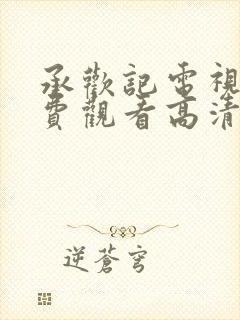 承歡記電視
費觀看高清
逆蒼穹